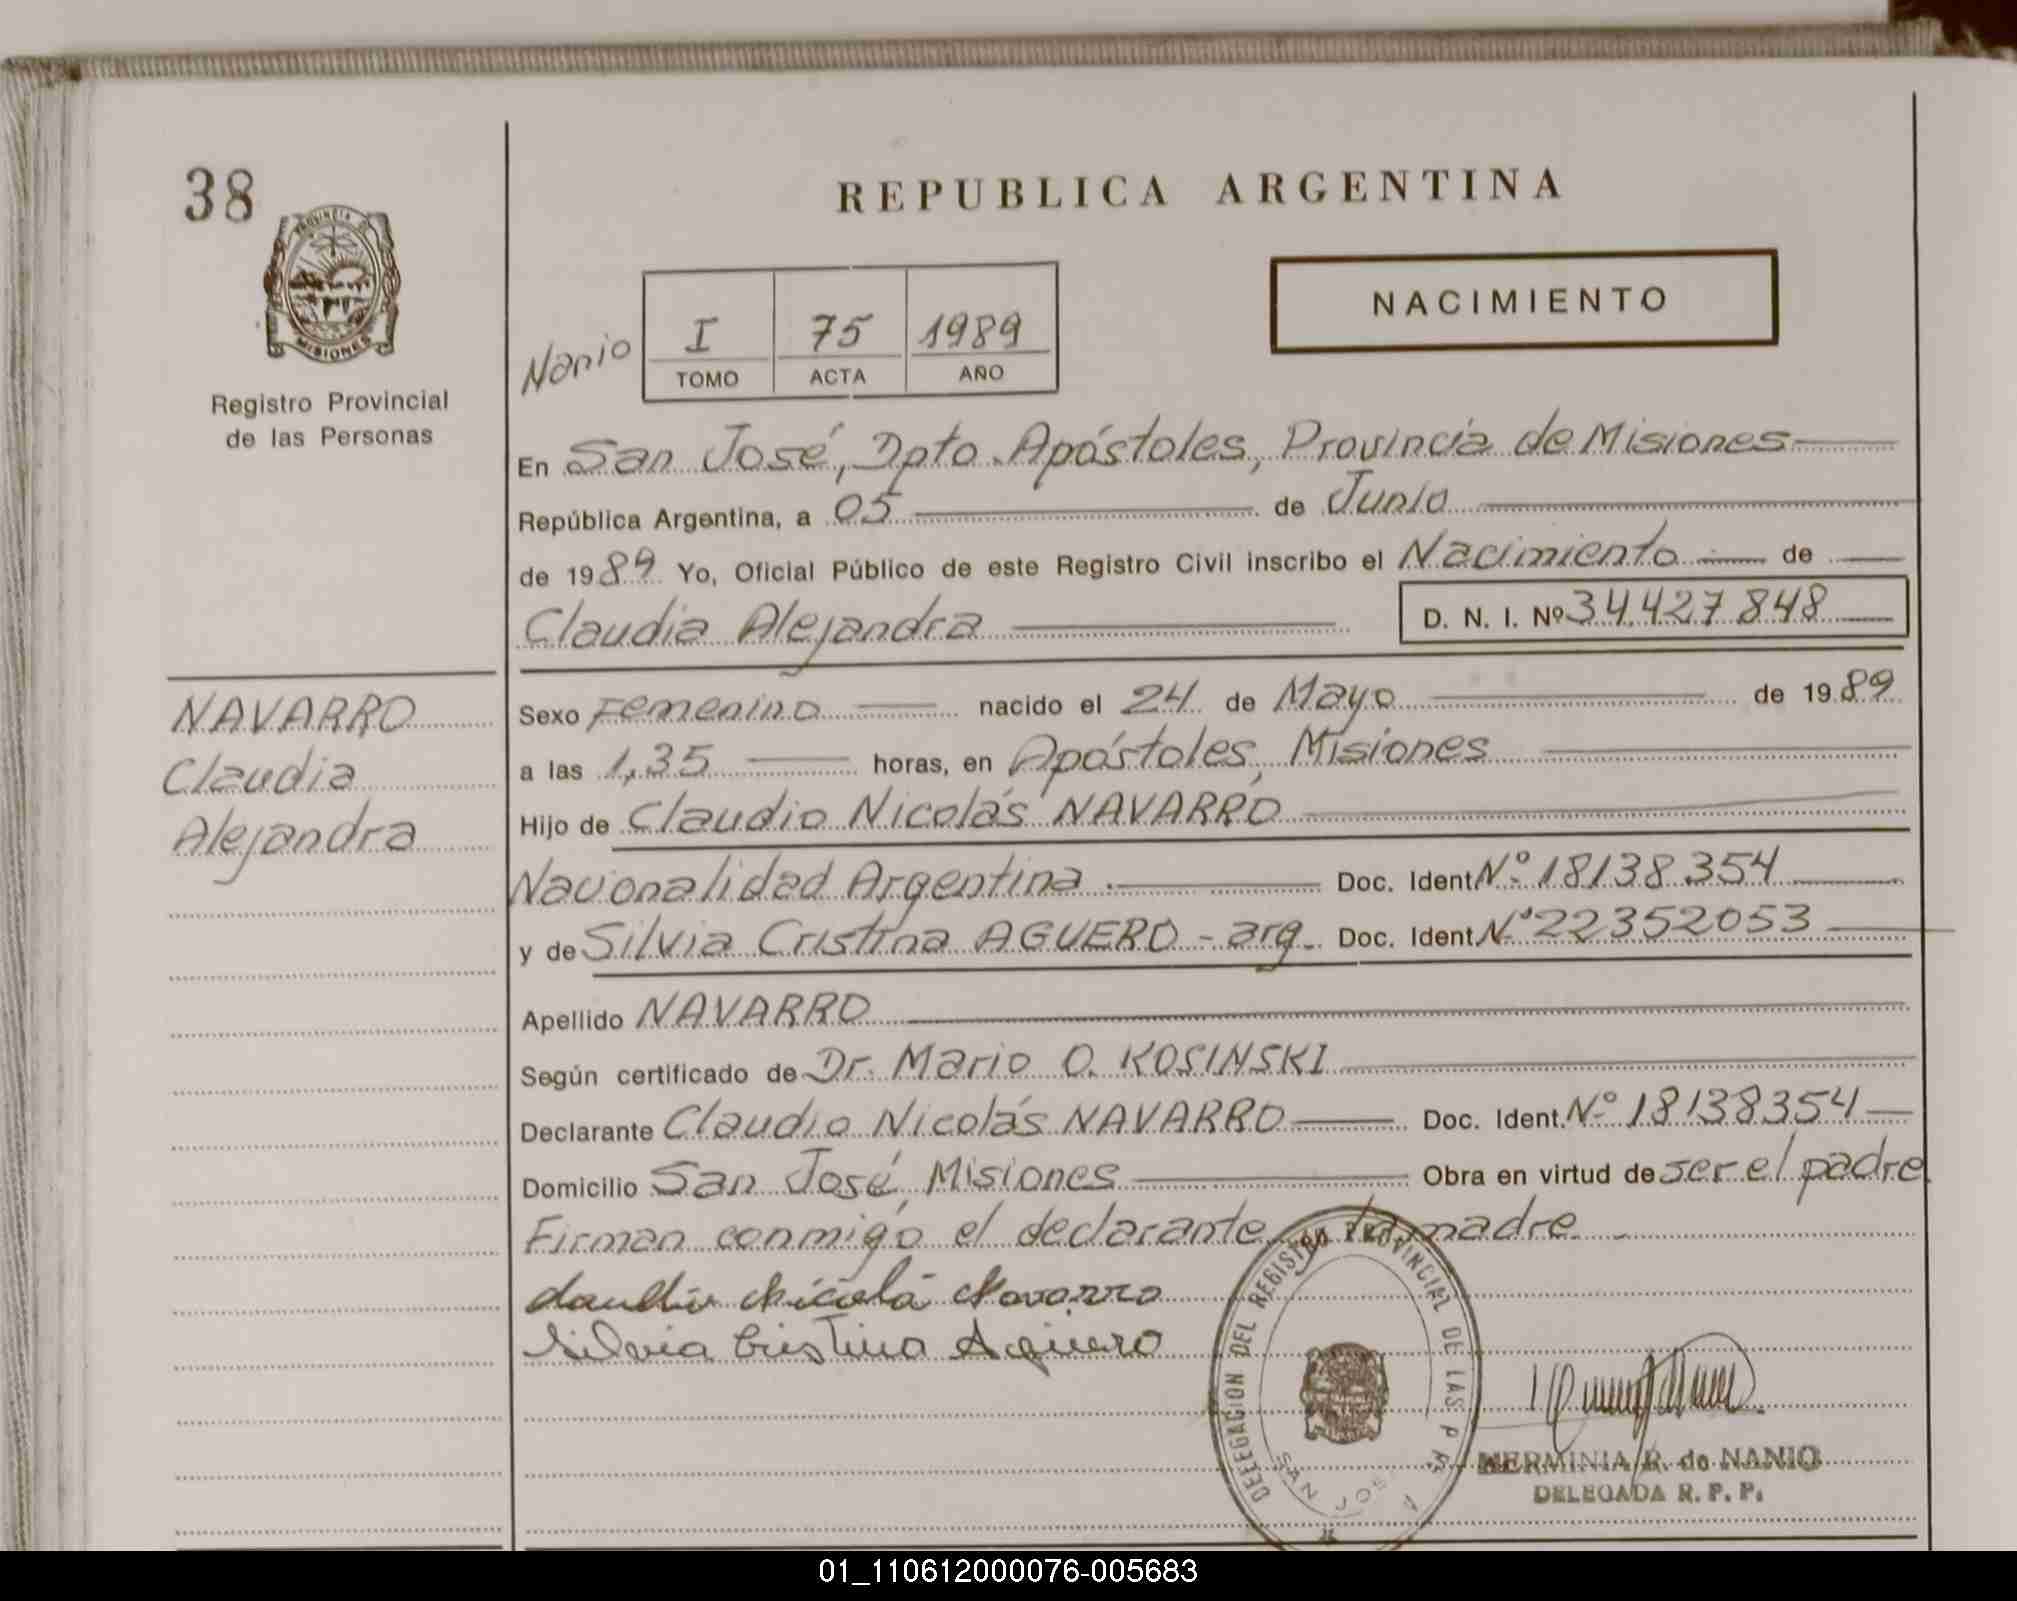 38
REPUBLICA ARGENTINA
PROVINCIA DE
MISIONES
Registro Provincial
de las Personas
NACIMIENTO
Nanio
I 75 1989
TOMO ACTA AÑO
En San José, Dpto. Apóstoles, Provincia de Misiones
República Argentina, a 05 de Junio
de 1989 Yo, Oficial Público de este Registro Civil inscribo el Nacimiento de
Claudia Alejandra D. N. I. Nº 34.427.848
NAVARRO
Claudia
Alejandra
Sexo Femenino nacido el 24 de Mayo de 1989
a las 1,35 horas, en Apóstoles, Misiones
Hijo de Claudio Nicolás NAVARRO
Nacionalidad Argentina Doc. Ident. Nº 18138354
y de Silvia Cristina AGUERO - arg. Doc. Ident. Nº 22352053
Apellido NAVARRO
Según certificado de Dr. Mario O. KOSINSKI
Declarante Claudio Nicolás NAVARRO Doc. Ident. Nº 18138354
Domicilio San José, Misiones Obra en virtud de ser el padre
Firman conmigo el declarante y la madre
Claudio Nicola Navarro
Silvia Cristina Aguero
DELEGACION DEL REGISTRO PROVINCIAL DE LAS
SAN JOSE
HERMINIA R. de NANIO
DELEGADA R. P. P.
01_110612000076-005683